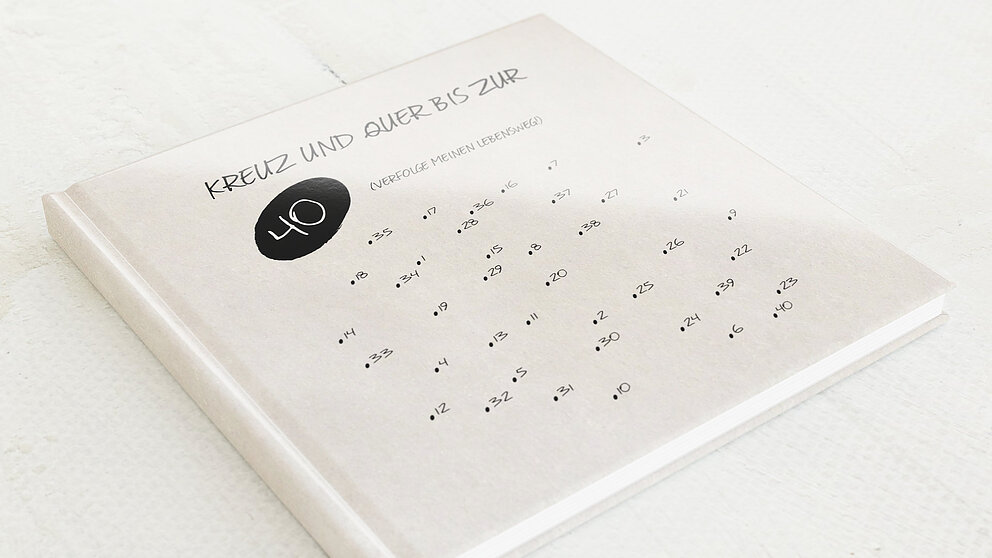 KREUZ UND QUER BIS ZUR
40
(VERFOLGE MEINEN LEBENSWEG!)
3
7
16
37
27
21
17
36
28
38
9
35
15
8
26
22
1
18
34
29
20
25
39
23
19
11
2
24
40
14
13
30
6
33
4
5
12
32
31
10